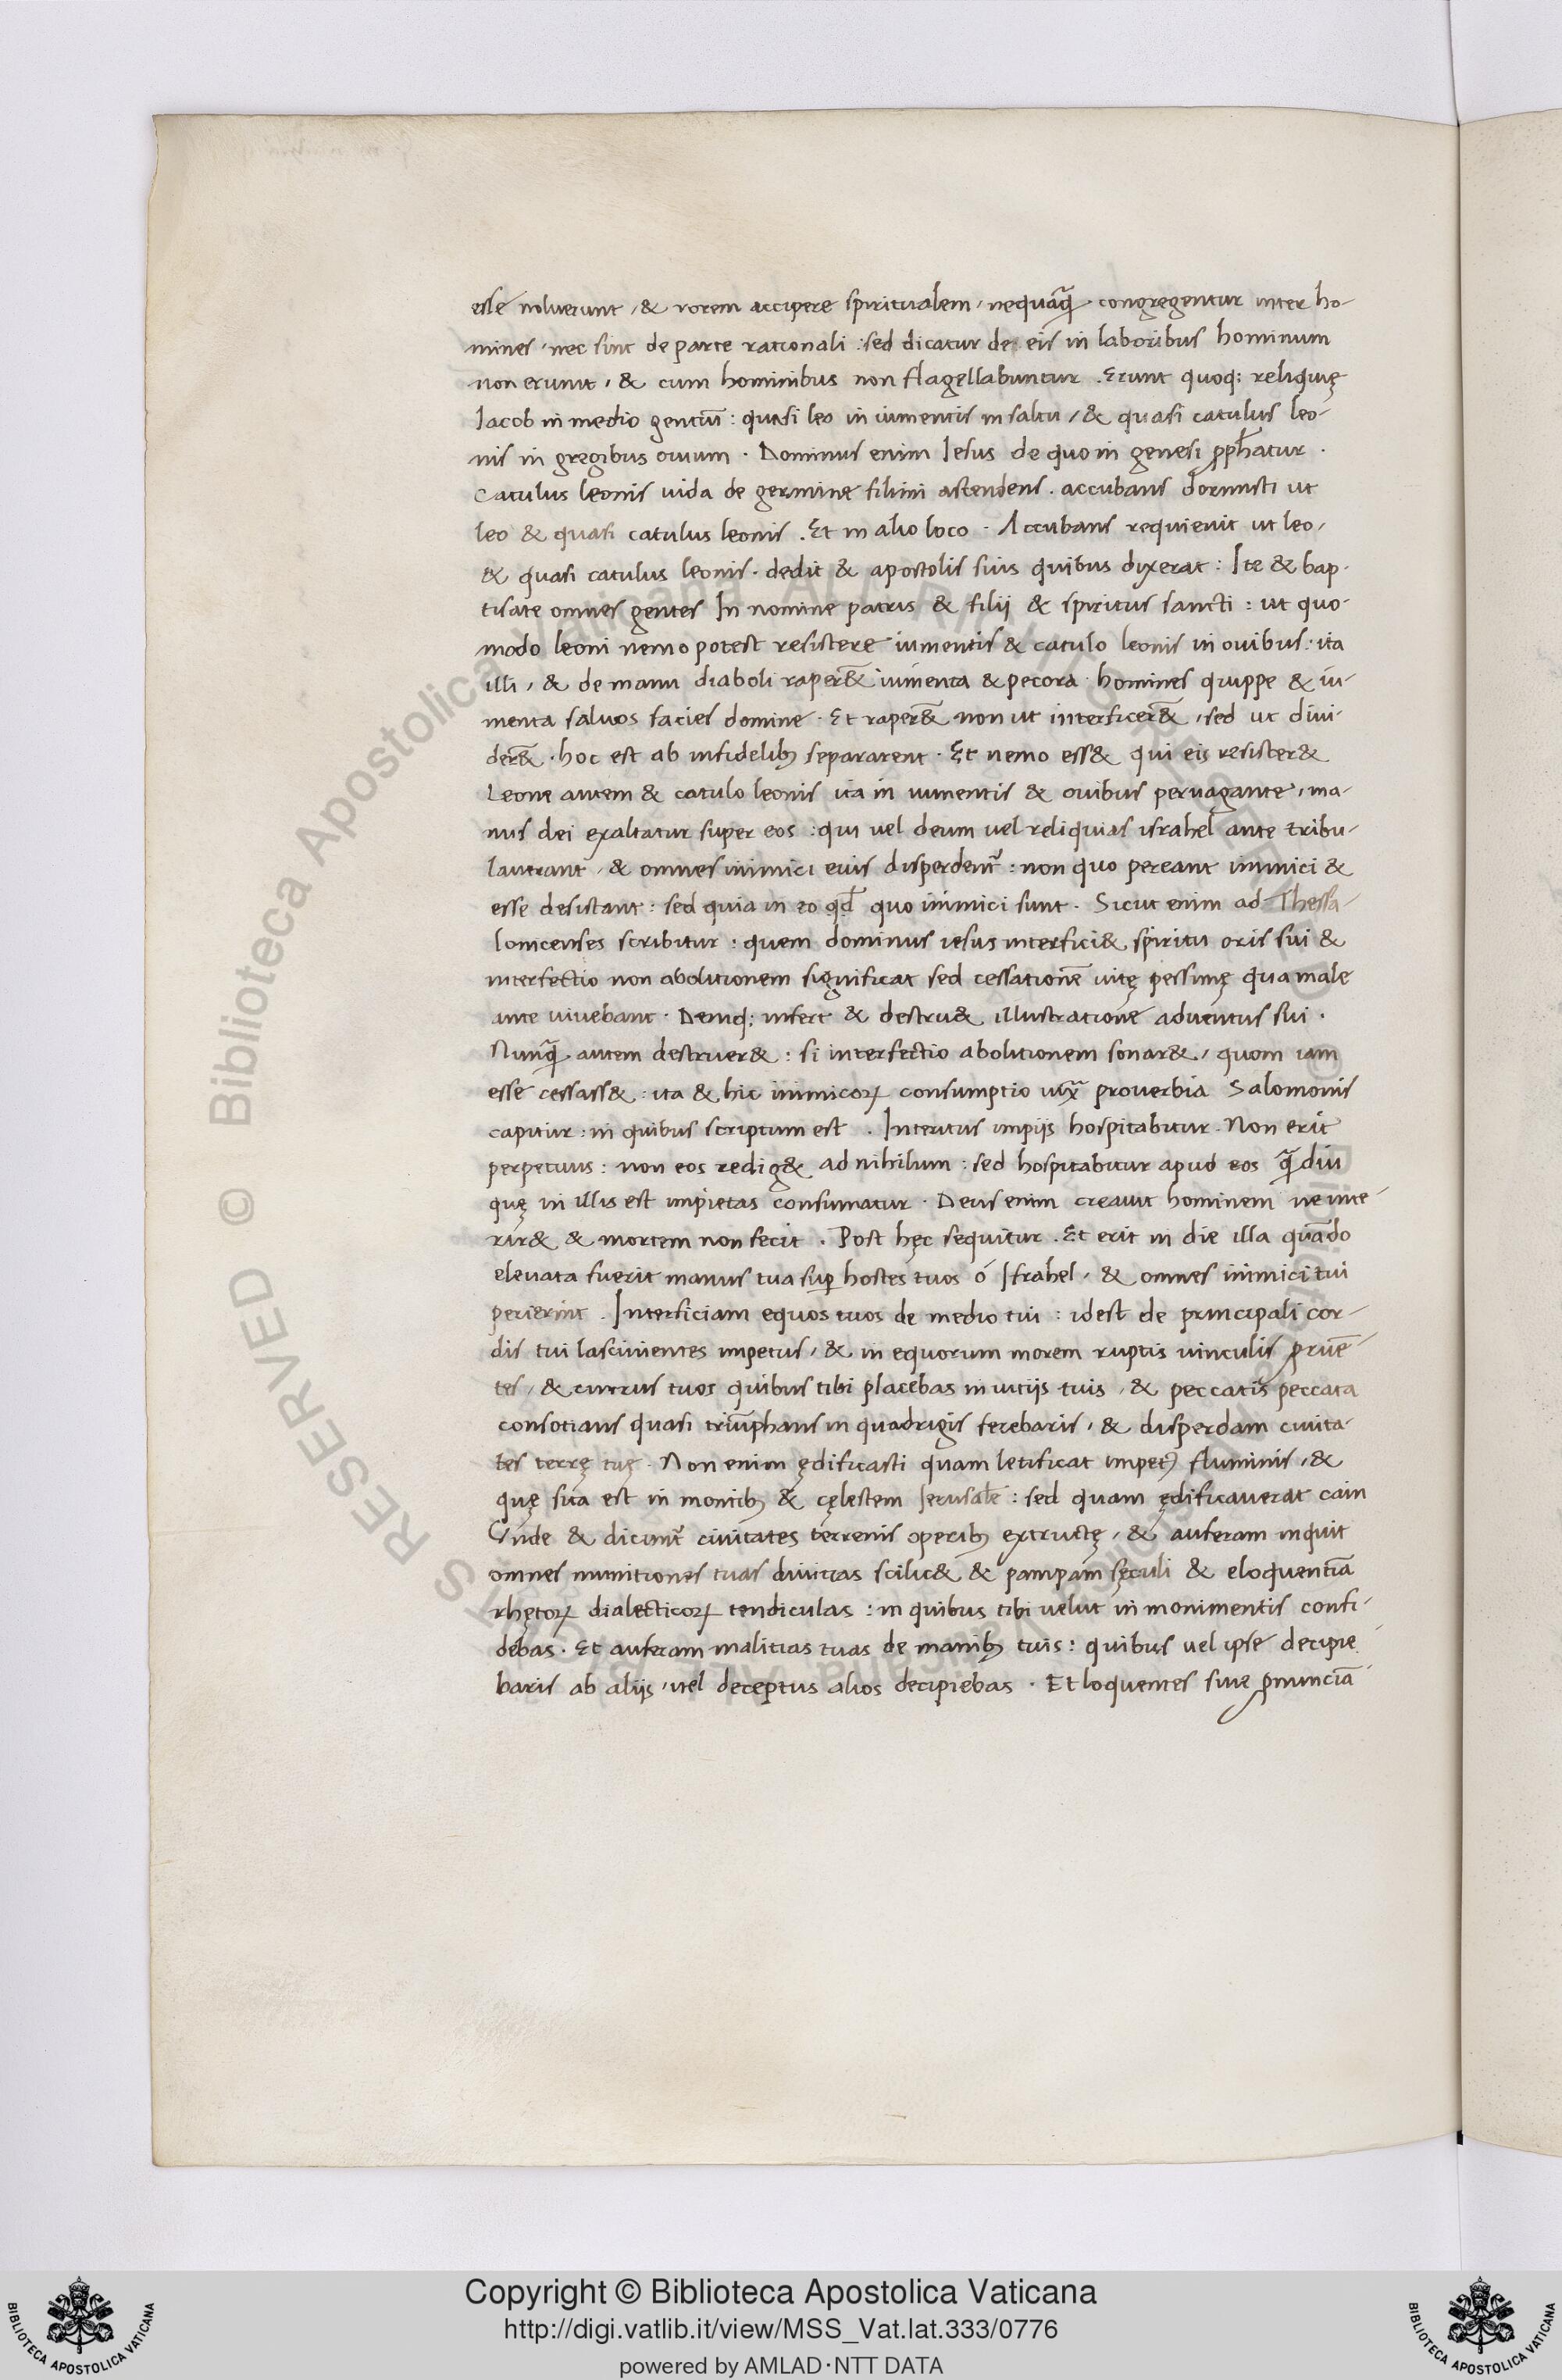 esse noluerunt, & rorem accipere spiritualem, nequaq̃ congregentur inter ho-
mines, nec sint de parte rationali : sed dicatur de eis in laboribus hominum
non erunt, & cum hominibus non flagellabuntur . Erunt quoq; reliquię
Iacob in medio gentiũ : quasi leo in iumentis in saltu, & quasi catulus leo-
nis in gregibus ouium . Dominus enim Iesus de quo in genesi ꝓph̃atur .
Catulus leonis uida de germine filimi ascendens . accubans dormisti ut
leo & quasi catulus leonis . Et in alio loco . Accubans requieuit ut leo,
& quasi catulus leonis . dedit & apostolis suis quibus dixerat : Ite & bap-
tisate omnes gentes In nomine patris & filij & spiritus sancti : ut quo-
modo leoni nemo potest resistere iumentis & catulo leonis in ouibus . ita
illi, & de manu diaboli raper&̃ iumenta & pecora . homines quippe & iu-
menta saluos facies domine . Et raper&̃ non ut interficer&̃, sed ut diui-
der&̃ . hoc est ab infidelibꝫ separarent . Et nemo ess& qui eis resister&
Leone autem & catulo leonis ita in iumentis & ouibus peruagante, ma-
nus dei exaltatur super eos : qui uel deum uel reliquias israhel ante tribu-
lauerant, & omnes inimici eius disperdent᷑ : non quo pereant inimici &
esse desistant : sed quia in eo qđ quo inimici sunt . Sicut enim ad Thessa-
lonicenses scribitur : quem dominus iesus interfici& spiritu oris sui &
interfectio non abolitionem significat sed cessationẽ uitę pessimę qua male
ante uiuebant . Deniq; infert & destru& illustratione aduentus sui .
Nunq̃ autem destruer& : si interfectio abolitionem sonar&, quom iam
esse cessass& : ita & hic inimicoꝝ consumptio iux̃ prouerbia Salomonis
capitur : in quibus scriptum est . Interitus impijs hospitabitur . Non erit
perpetuus : non eos redig& ad nihilum : sed hospitabitur apud eos q̃ diu
quę in illis est impietas consumatur . Deus enim creauit hominem ne inte-
rir& & mortem non fecit . Post hęc sequitur . Et erit in die illa quãdo
eleuata fuerit manus tua suꝑ hostes tuos ó Israhel, & omnes inimici tui
perierint . Interficiam equos tuos de medio tui : idest de principali cor-
dis tui lasciuientes impetus, & in equorum morem ruptis uinculis ꝓruẽ-
tes, & currus tuos quibus tibi placebas in uitijs tuis, & peccatis peccata
consotians quasi triũphans in quadrigis ferebaris, & disperdam ciuita-
tes terrę tuę . Non enim ędificasti quam letificat impet᷒ fluminis, &
quę sita est in montibꝫ & cęlestem Ierusalẽ : sed quam ędificauerat cain
Vnde & dicunt᷑ ciuitates terrenis operibꝫ extructę, & auferam inquit
omnes munitiones tuas diuitias scilic& & pampam sęculi & eloquentiã
rhętoꝝ dialecticoꝝ tendiculas : in quibus tibi uelut in monimentis confi-
debas . Et auferam malitias tuas de manibꝫ tuis : quibus uel ipse decipie-
baris ab alijs, uel deceptus alios decipiebas . Et loquentes siue ꝓnunciã-
Copyright © Biblioteca Apostolica Vaticana
http://digi.vatlib.it/view/MSS_Vat.lat.333/0776
powered by AMLAD·NTT DATA